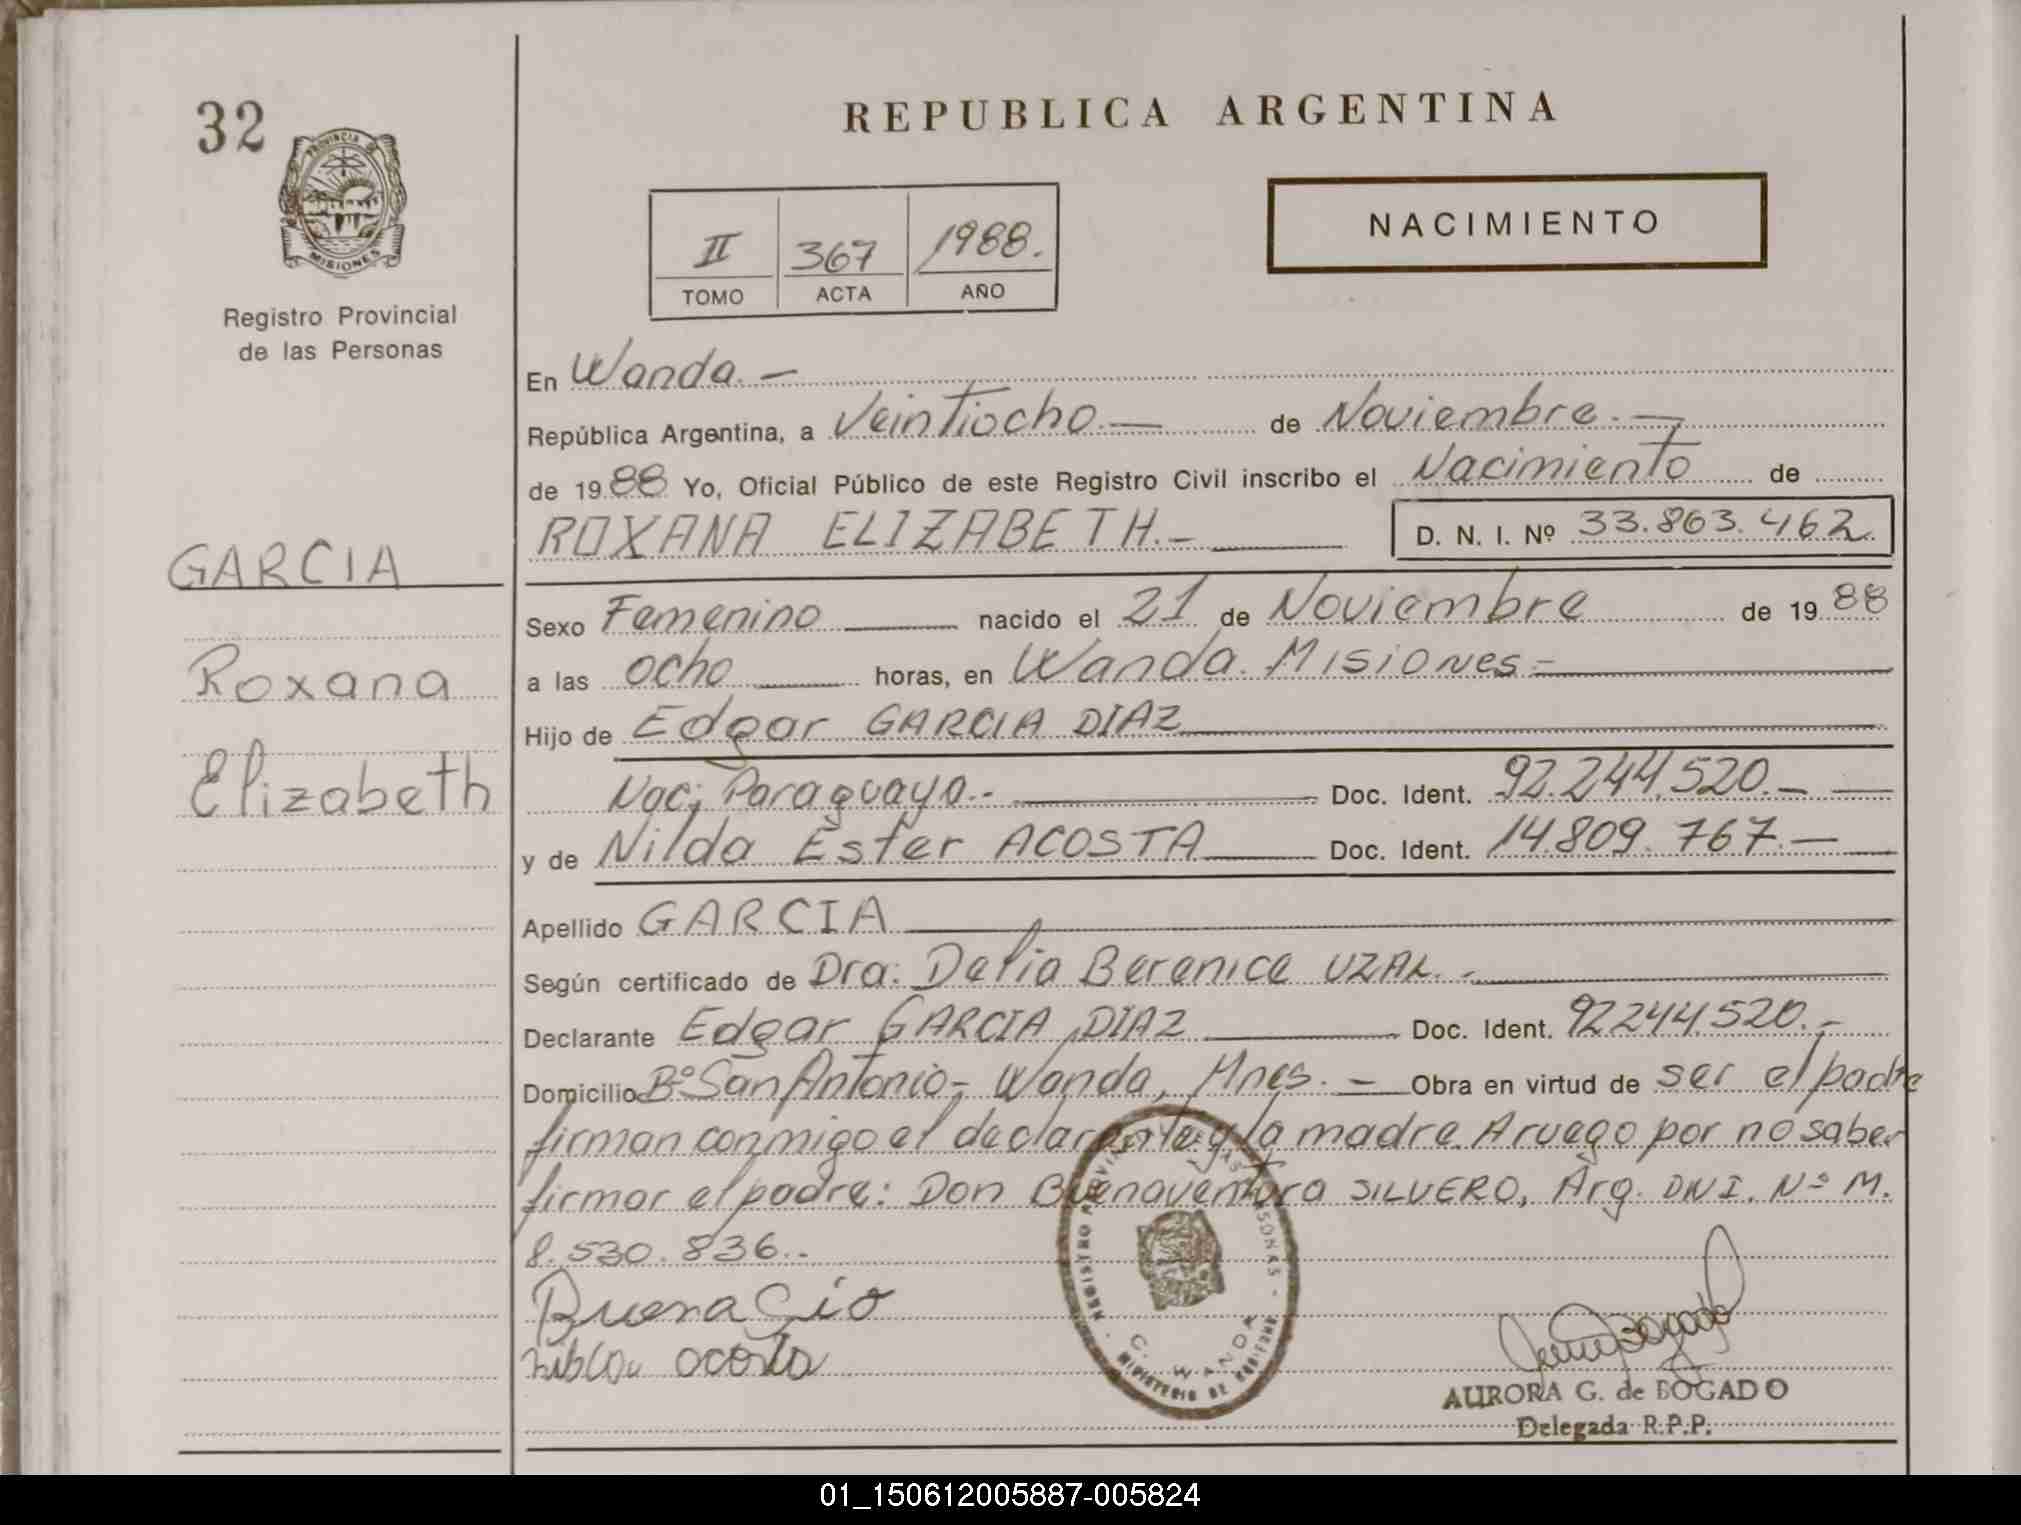 32
PROVINCIA DE
MISIONES
Registro Provincial
de las Personas
GARCIA
Roxana
Elizabeth
REPUBLICA ARGENTINA
II 367 1988.
TOMO ACTA AÑO
NACIMIENTO
En Wanda.-
República Argentina, a Veintiocho.- de Noviembre.-
de 1988 Yo, Oficial Público de este Registro Civil inscribo el Nacimiento de
ROXANA ELIZABETH.- D. N. I. Nº 33.863.462
Sexo Femenino nacido el 21 de Noviembre de 1988
a las ocho horas, en Wanda. Misiones.-
Hijo de Edgar GARCIA DIAZ
Nac; Paraguaya.- Doc. Ident. 92.244.520.-
y de Nilda Ester ACOSTA Doc. Ident. 14.809.767.-
Apellido GARCIA
Según certificado de Dra: Delia Berenice UZAL.-
Declarante Edgar GARCIA DIAZ Doc. Ident. 92244.520.-
Domicilio Bº San Antonio- Wanda, Mnes.- Obra en virtud de ser el padre
firman conmigo el declarante y la madre. A ruego por no saber
firmar el padre: Don Buenaventura SILVERO, Arg. DNI. Nº M.
8.530.836..
acosta
REGISTRO PROVINCIAL DE LAS PERSONAS -
C. WANDA
MINISTERIO DE GOBIERNO
AURORA G. de BOGADO
Delegada R.P.P.
01_150612005887-005824